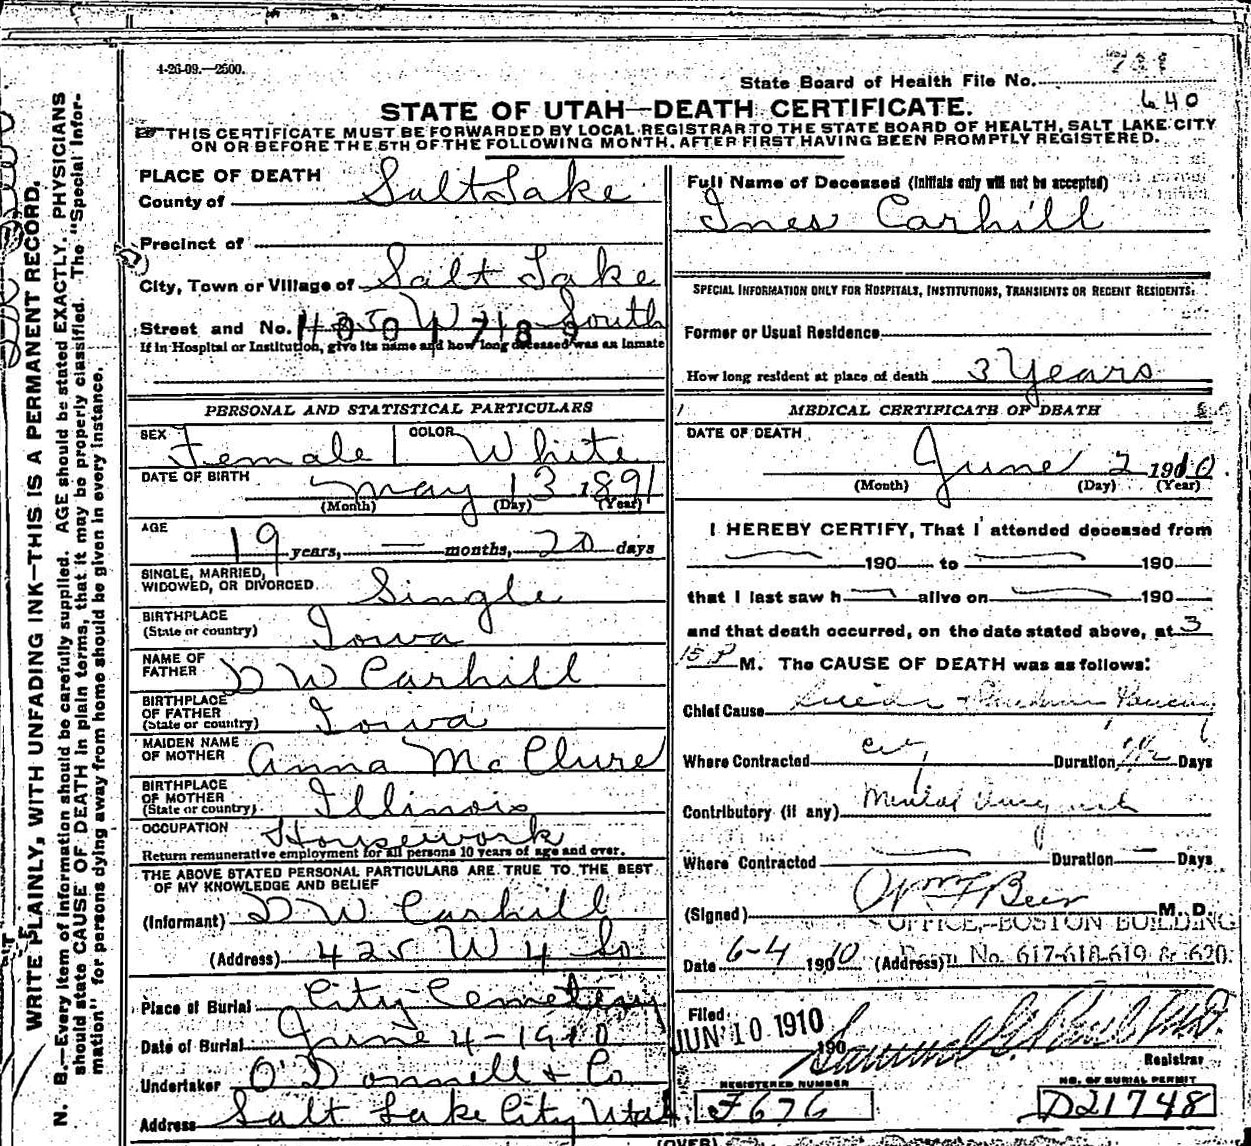 4-26-09.—2500.
State Board of Health File No.
640
STATE OF UTAH—DEATH CERTIFICATE.
THIS CERTIFICATE MUST BE FORWARDED BY LOCAL REGISTRAR TO THE STATE BOARD OF HEALTH, SALT LAKE CITY
ON OR BEFORE THE 5TH OF THE FOLLOWING MONTH, AFTER FIRST HAVING BEEN PROMPTLY REGISTERED.
WRITE PLAINLY, WITH UNFADING INK—THIS IS A PERMANENT RECORD.
N. B.—Every item of information should be carefully supplied. AGE should be stated EXACTLY. PHYSICIANS
should state CAUSE OF DEATH in plain terms, that it may be properly classified. The "Special Infor-
mation" for persons dying away from home should be given in every instance.
PLACE OF DEATH
County of Salt Lake
Precinct of
City, Town or Village of Salt Lake
Street and No. 425 W 4 South
1001789
If in Hospital or Institution, give its name and how long deceased was an inmate
PERSONAL AND STATISTICAL PARTICULARS
SEX Female COLOR White
DATE OF BIRTH May 13 1891
(Month) (Day) (Year)
AGE 19 years, — months, 20 days
SINGLE, MARRIED,
WIDOWED, OR DIVORCED Single
BIRTHPLACE
(State or country) Iowa
NAME OF
FATHER D W Carhill
BIRTHPLACE
OF FATHER
(State or country) Iowa
MAIDEN NAME
OF MOTHER Anna McClure
BIRTHPLACE
OF MOTHER
(State or country) Illinois
OCCUPATION Housework
Return remunerative employment for all persons 10 years of age and over.
THE ABOVE STATED PERSONAL PARTICULARS ARE TRUE TO THE BEST
OF MY KNOWLEDGE AND BELIEF
(Informant) D W Carhill
(Address) 425 W 4 So
Place of Burial City Cemetery
Date of Burial June 4-1910
Undertaker O'Donnell & Co
Address Salt Lake City Utah
Full Name of Deceased (Initials only will not be accepted)
Ines Carhill
SPECIAL INFORMATION ONLY FOR HOSPITALS, INSTITUTIONS, TRANSIENTS OR RECENT RESIDENTS.
Former or Usual Residence
How long resident at place of death 3 Years
MEDICAL CERTIFICATE OF DEATH
DATE OF DEATH
June 2 1910.
(Month) (Day) (Year)
I HEREBY CERTIFY, That I attended deceased from
— 190 to — 190
that I last saw h — alive on — 190
and that death occurred, on the date stated above, at 3
15 P M. The CAUSE OF DEATH was as follows:
Chief Cause
Where Contracted City Duration Days
Contributory (if any) Mental
Where Contracted — Duration — Days
(Signed) Wm F Beer M. D.
OFFICE,-BOSTON BUILDING
Date 6-4 1910 (Address) Room No. 617-618-619 & 620.
Filed
JUN 10 1910
190
Registrar
REGISTERED NUMBER
F676
NO. OF BURIAL PERMIT
D21748
(OVER)